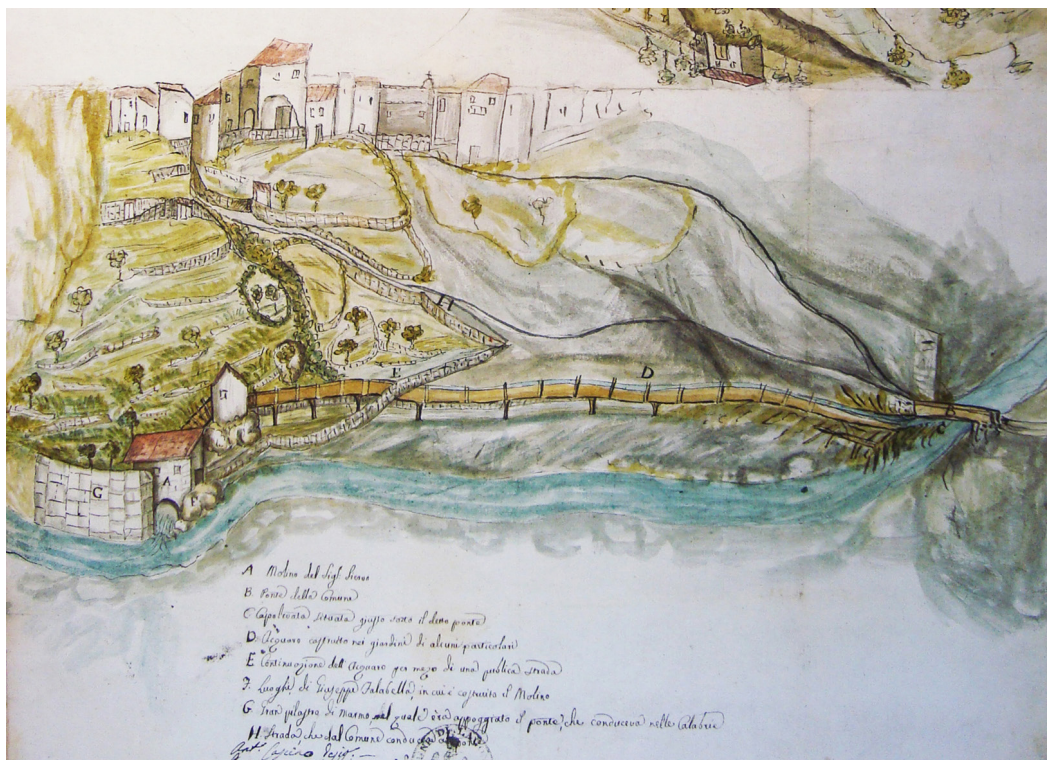 H
E
D
B
G
A
A Molino del Sig.r
B. Ponte della Comune
C Capotreata situata giusto sotto il detto ponte
D. Acquaro costruito nei giardini di alcuni particolari
E Continuazione dell Acquaro per mezo di una publica strada
F. Luoghi di Giuseppe Falabella, in cui è costruito il Molino
G. Gran pilastro di Marmo, nel quale era appoggiato il ponte, che conduceva nelle Calabrie
H. Strada, che dal Comune conduce al ponte